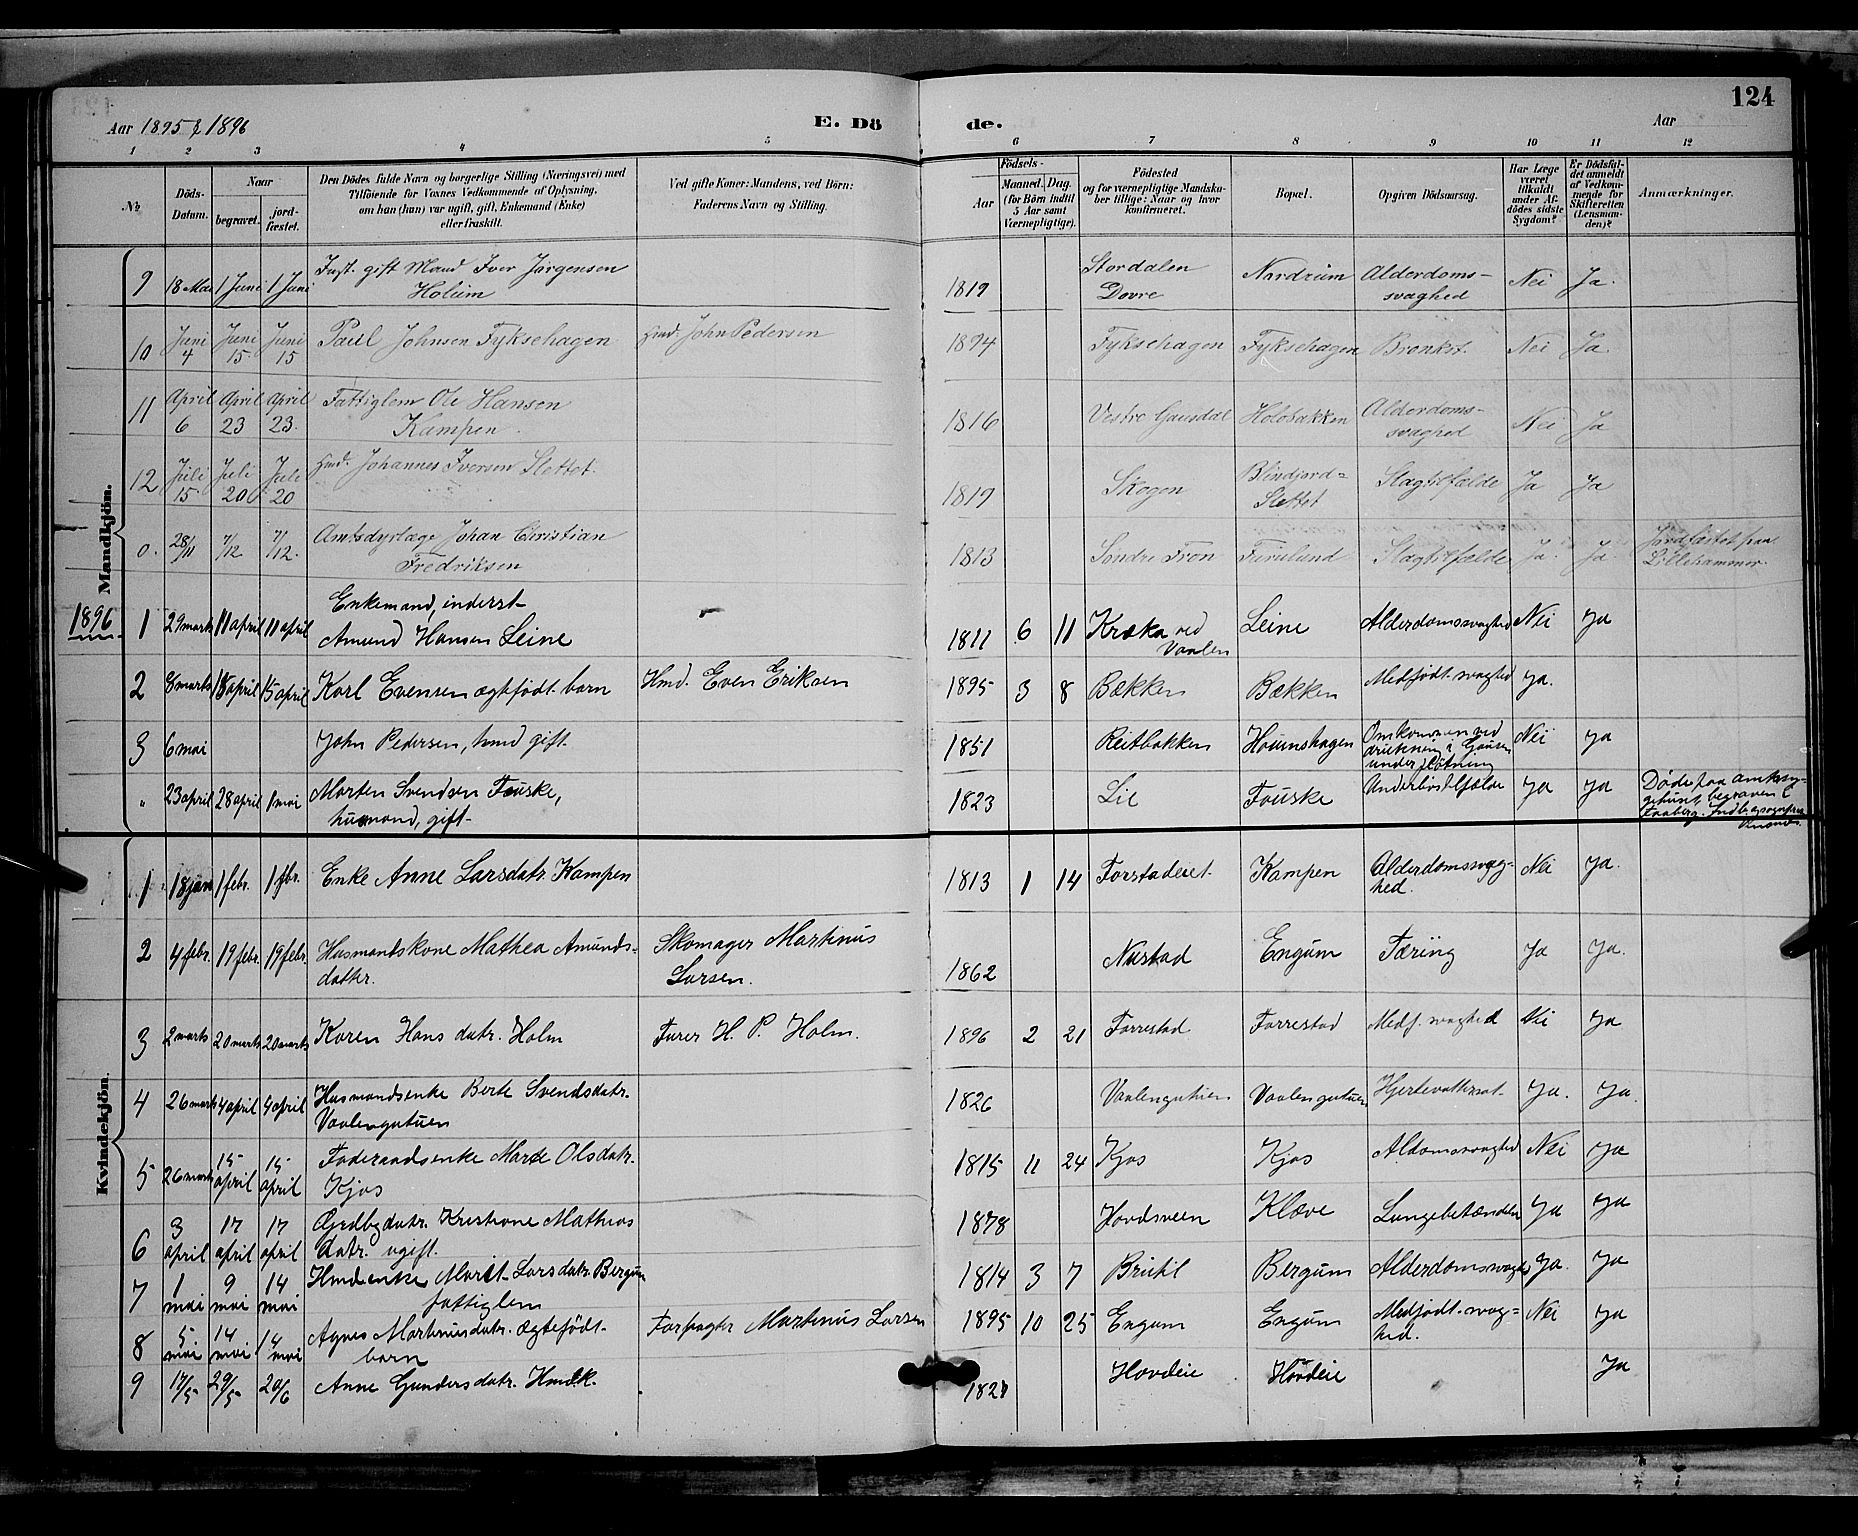 124
Aar 1895 & 1896 E. Dö de. Aar
1 2 3 4 5 6 7 8 9 10 11 12
№ Döds-Datum. Naar begravet. jordfæstet. Den Dödes fulde Navn og borgerlige Stilling (Næringsvei) med Tilföiende for Voxnes Vedkommende af Oplysning, om han (hun) var ugift, gift, Enkemand (Enke) eller fraskilt. Ved gifte Koner: Mandens, ved Börn: Faderens Navn og Stilling. Födsels- Aar Maaned. Dag. (for Börn indtil 5 Aar samt Værnepligtige). Födested og for værnepligtige Mandskaber tillige: Naar og hvor konfirmeret. Bopæl. Opgiven Dödsaarsag. Har Læge været tilkaldt under Afdödes sidste Sygdom? Er Dödsfaldet anmeldt af Vedkommende for Skifteretten (Lensmanden)? Anmærkninger.
Mandkjön.
9 18 Mai 1 Juni 1 Juni Inst. gift Mand Iver Jørgensen Holum 1819 Stordalen Dovre Nordrum Alderdoms-svaghed Nei Ja.
10 Juni 4 Juni 15 Juni 15 Paul Johnsen Fyksehagen Hmd. John Pedersen 1894 Fyksehagen Fyksehagen Bronkit. Nei Ja.
11 April 6 April 23 April 23. Fattiglem Ole Hansen Kampen. 1816 Vestre Gausdal Holobakken Alderdoms-svaghed Nei Ja
12 Juli 15 Juli 20 Juli 20 Hmd. Johannes Iversen Slettet. 1819 Skogen Blindjord-Slettet Slagtilfælde Ja Ja
0. 28/11 7/12 7/12. Amtsdyrlæge Johan Christian Fredriksen 1813 Søndre Fron Furulund Slagtilfælde Ja. Ja. Jordfæstet paa Lillehammer.
1896
1 29 marts 11 april 11 april Enkemand, inderst Amund Hansen Leine 1811 6 11 Kræka ved Vaalen Leine Alderdomssvaghed Nei Ja
2 8 marts 15 april 15 april Karl Evensen ægtefødt barn Hmd. Even Eriksen 1895 3 8 Bækken Bækken Medfødt svaghed Ja.
3 6 mai John Pedersen, hmd gift. 1851 Reitbakken Houmshagen Omkommen ved drukning i Gausen under fløtning Nei Ja
" 23 april 28 april 1 mai Morten Svendsen Fouske, husmand, gift 1823 Lie Fouske Underlivstilfælde Ja Ja Døde paa amtssygehuset, begraven i Faaberg.
Kvindekjön.
1 18 jan 1 febr. 1 fbr. Enke Anne Larsdatr. Kampen 1813 1 14 Forstadeiet Kampen Alderdomssvag-hed. Nei Ja.
2 4 febr. 19 febr. 19 febr. Husmandskone Mathea Amunds-datter. Skomager Martinus Larsen. 1862 Nustad Engum Tæring Ja Ja.
3 2 marts 20 marts 20 marts Karen Hans datr. Holm Furer H. P. Holm. 1896 2 21 Forrestad Forrestad Medf. svaghed Nei Ja
4 26 marts 4 april 4 april Husmandsenke Berte Svendsdatr. Vaalengutuen 1826 Vaalengutuen Vaalengutuen Hjertevattersot. Ja. Ja.
5 26 marts 15 april 15 april Føderaadsenke Marte Olsdatr. Kjos 1815 11 24 Kjos Kjos Aldomssvaghed Nei Ja
6 3 april 17 april 17 april Grdbgdatr. Kristiane Mathias datr. ugift. 1878 Hovdsveen Klæve Lungebetændelse Ja Ja
7 1 mai 9 mai 14 mai Hmdenke Marit Larsdatr. Bergum fattiglem 1814 3 7 Brutil Bergum Alderdomssvaghed Ja. Ja
8 5. mai 14. mai 14 mai Agnes Martinusdatr. ægtefødt barn Forpagter Martinus Larsen 1895 10 25 Engum Engum Medfødt svag-hed. Nei Ja
9 17/5 29/5 20/6 Anne Gundersdatr. Hmdk. Hovdeie Hovdeie Ja